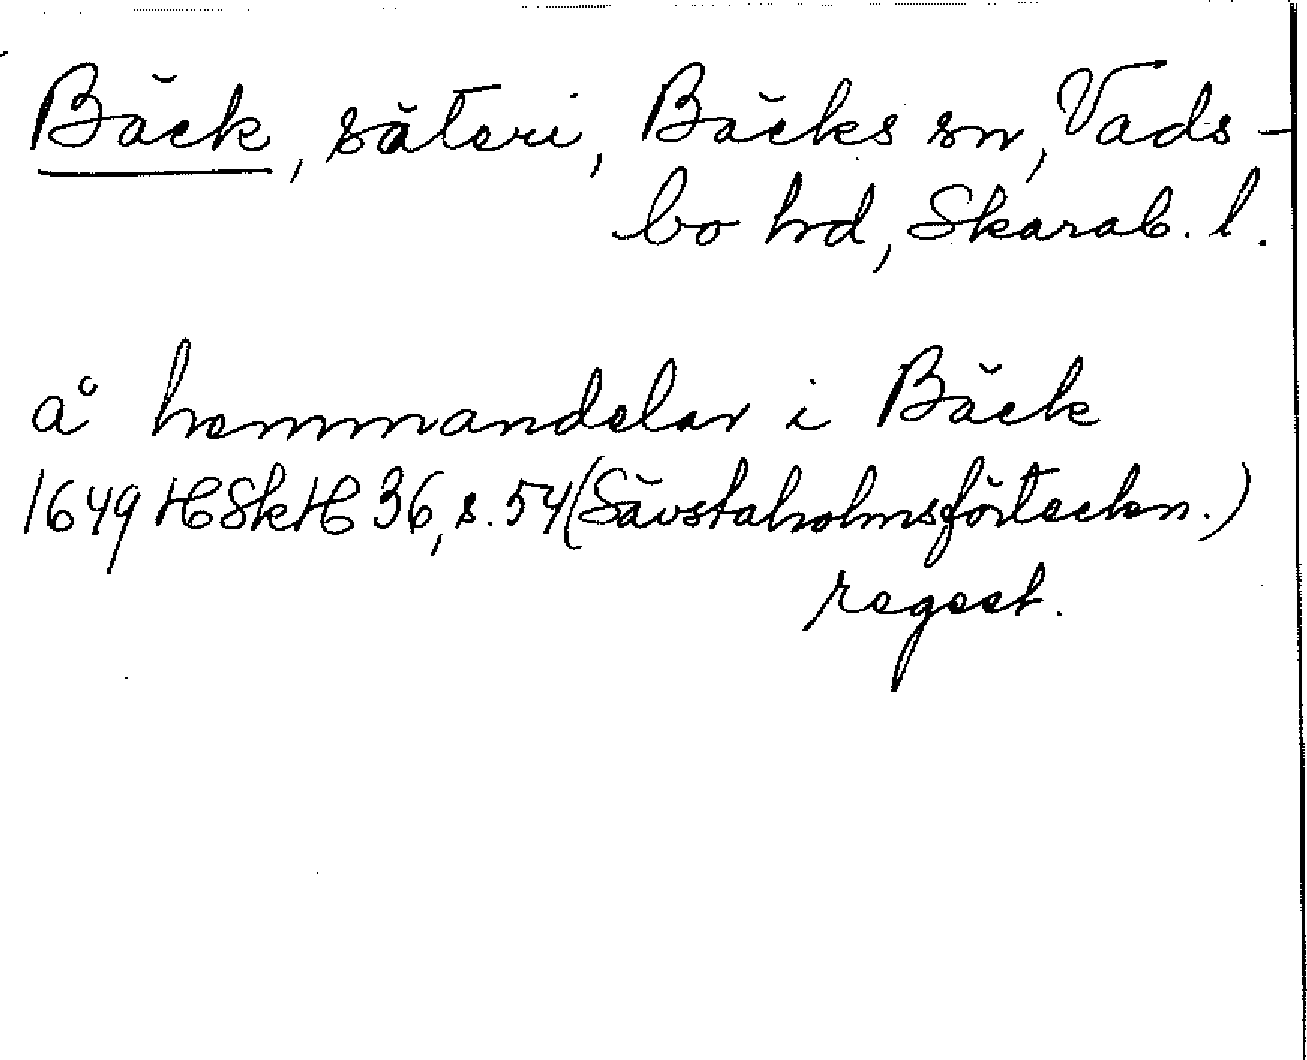 Bäck, säteri, Bäcks sn, Vads-
bo hd, Skarab. l.
å hemmandelar i Bäck
1649 HSkH 36, s. 54 (Sävstaholmsförteckn.)
regest.